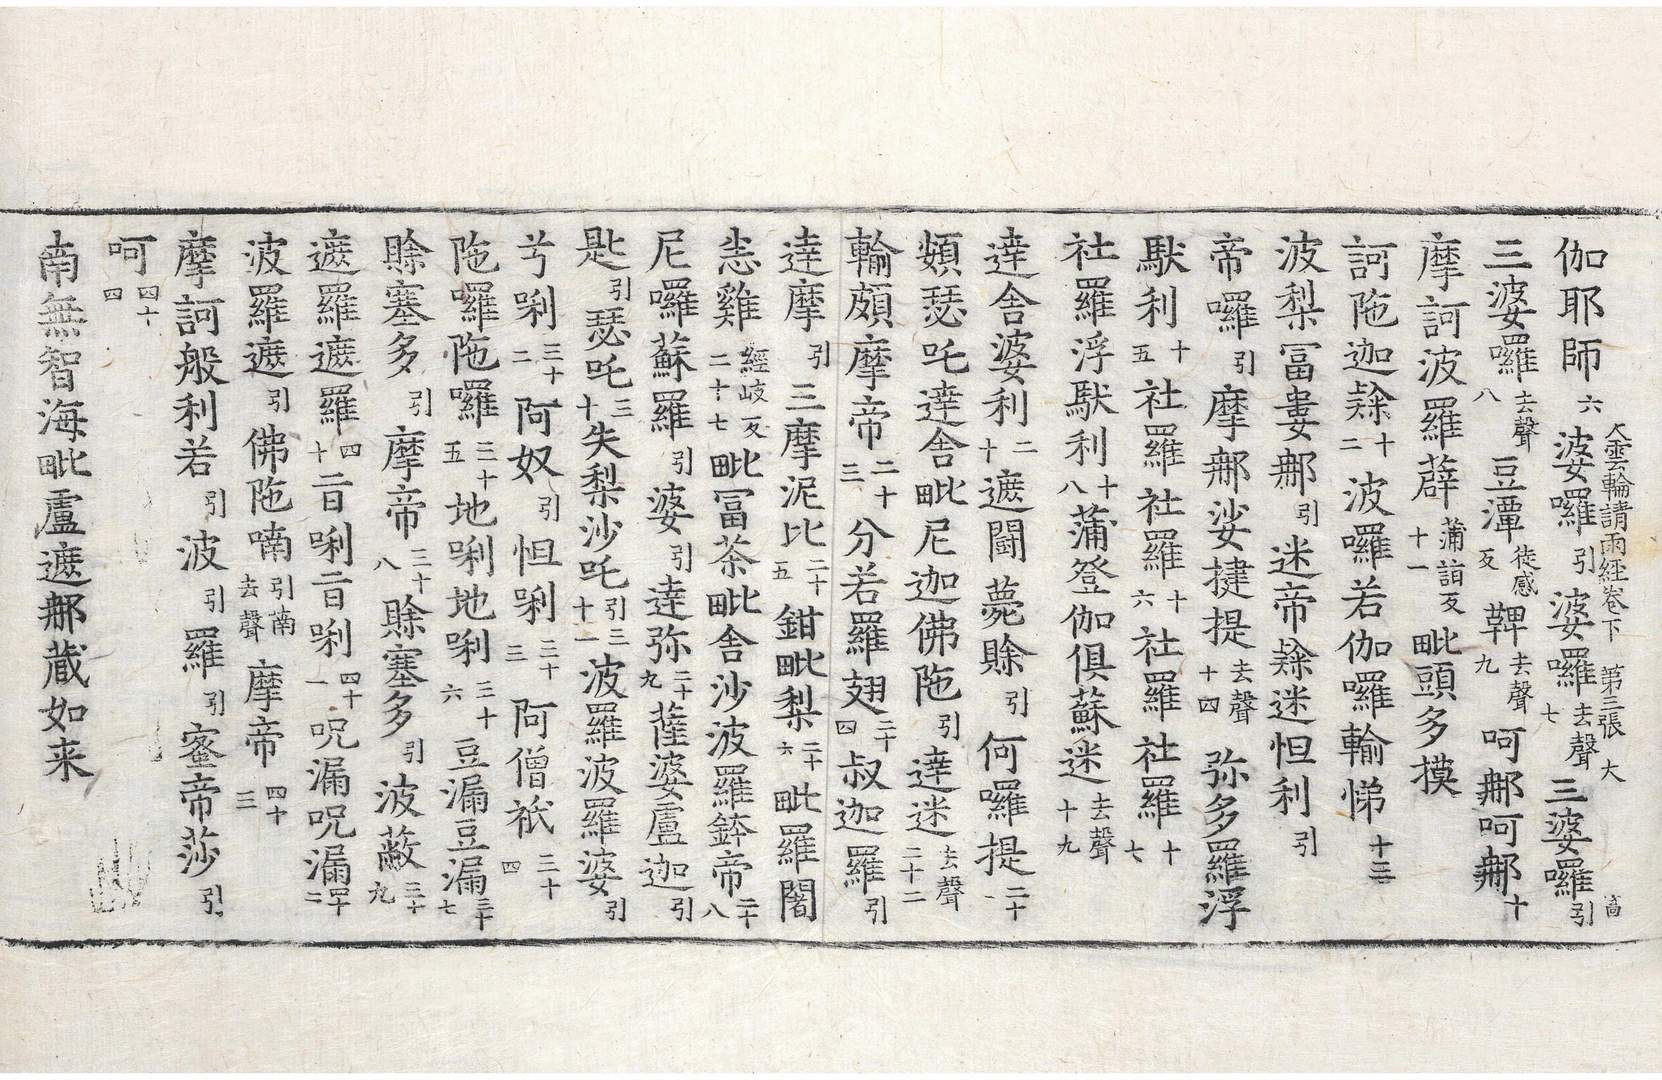 大雲輪請雨経卷下 第三張 大 高
伽耶師六婆囉引婆囉去聲七三婆囉引
三婆囉去聲八豆潭徒感反鞞去聲九呵郍呵郍十
摩訶波羅薜蒲詣反十一毗頭多摸
訶陁迦㖿十二波囉若伽囉輸悌十三
波梨冨婁郍引迷帝隸迷怛利引
帝囉引摩郍娑揵提去聲十四弥多羅浮
馱利十五社羅社羅十六社羅社羅十七
社羅浮馱利十八蒲登伽俱蘇迷去聲十九
達舍婆利二十遮鬪薨賒引何囉提二十一
頞瑟吒達舍毗尼迦佛陁引達迷去聲二十二
輸頗摩帝二十三分若羅翅二十四叔迦羅引
達摩引三摩泥比二十五鉗毗梨二十六毗羅闍
恚雞經岐反二十七毗冨茶毗舍沙波羅鉢帝二十八
尼囉蘇羅引婆引達弥二十九薩婆盧迦引
匙引瑟吒三十失梨沙吒引三十一波羅波羅婆引
兮唎三十二阿奴引怛唎三十三阿僧祇三十四
陁囉陁囉三十五地唎地唎三十六豆漏豆漏三十七
賒塞多引摩帝三十八賒塞多引波蔽三十九
遮羅遮羅四十旨唎旨唎四十一呪漏呪漏四十二
波羅遮引佛陁喃引南去聲摩帝四十三
摩訶般利若引波引羅引蜜帝莎引
呵四十四
南無智海毗盧遮郍蔵如来